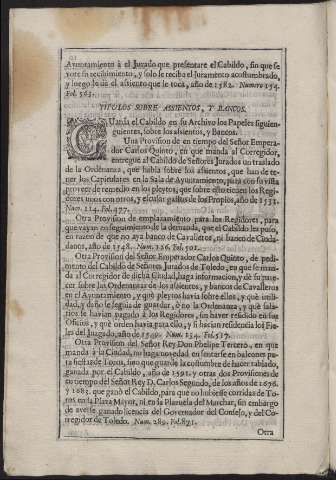 Ayuntamiento à el Jurado que presentare el Cabildo, sin que se
vote su recibimiento, y solo se reciba el Juramento acostumbrado,
y luego le dè el assiento que le toca, año de 1582. Numero 154.
Fol. 563.
TITULOS SOBRE ASSIENTOS, Y BANCOS.
GUarda el Cabildo en su Archivo los Papeles siguien-
guientes, sobre los assientos, y Bancos.
Una Provision de en tiempo del Señor Empera-
dor Carlos Quinto, en que manda al Corregidor,
entregue al Cabildo de Señores Jurados un traslado
de la Ordenança, que habla sobre los assientos, que han de te-
ner los Capitulares en la Sala de Ayuntamiento, para con su vista
proveer de remedio en los pleytos, que sobre esto tienen los Regi-
dores unos con otros, y escusar gastos de los Propios, año de 1533.
Num. 114. Fol. 477.
Otra Provision de emplazamiento para los Regidores, para
que vayan en seguimiento de la demanda, que el Cabildo les puso,
en razon de que no aya banco de Cavalleros, ni banco de Ciuda-
danos, año de 1548. Num. 126. Fol. 501.
Otra Provision del Señor Emperador Carlos Quinto, de pedi-
mento del Cabildo de Señores Jurados de Toledo, en que se man-
da al Corregidor de dicha Ciudad, haga informacion, y dè su pare-
cer sobre las Ordenanzas de los assientos, y bancos de Cavalleros
en el Ayuntamiento, y què pleytos havia sobre ellos, y què utili-
dad, y daño se seguia de guardar, ò no la Ordenanza, y què sala-
rios se havian pagado à los Regidores, sin haver residido en sus
Oficios, y què orden havia para ello, y si hacian residencia los Fie-
les del Juzgado, año de 1549. Num. 134. Fol. 517.
Otra Provision del Señor Rey Don Phelipe Tercero, en que
manda à la Ciudad, no haga novedad en sentarse en balcones pa-
ra fiestas de Toros, sino que guarde la costumbre de hacer tablado,
ganada por el Cabildo, año de 1591. y otras dos Provisiones de
en tiempo del Señor Rey D. Carlos Segundo, de los años de 1676.
y 1683. que ganò el Cabildo, para que no huviesse corridas de To-
ros en la Plaza Mayor, ni en la Plazuela de Marchar, sin embargo
de averse ganado licencia del Governador del Consejo, y del Co-
rregidor de Toledo. Num. 289. Fol. 871.
Otra